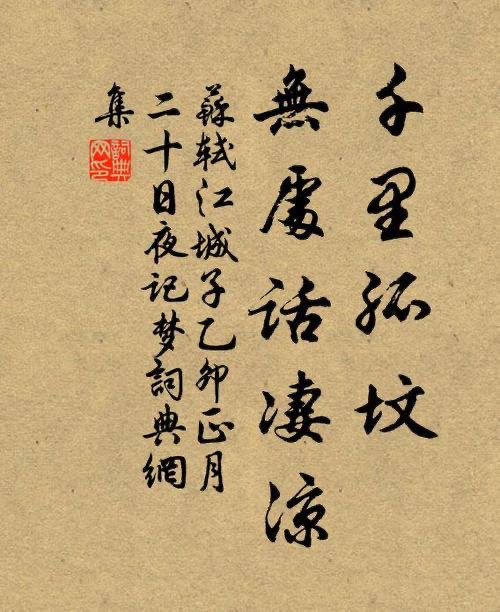 千里孤坟
無處話凄涼
蘇軾江城子乙卯正月
二十日夜记梦詞典網
集
詞典
网印